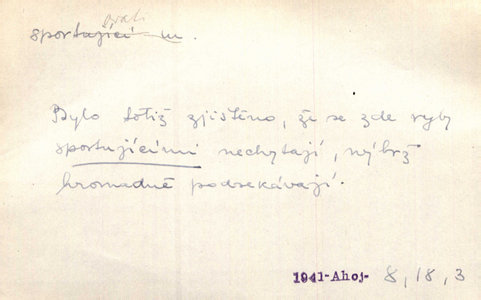 sportující m.
Bylo totiž zjištěno, že se zde ryby
sportujícími nechytají, nýbrž
hromadně podsekávají.
1941-Ahoj- 8, 18, 3